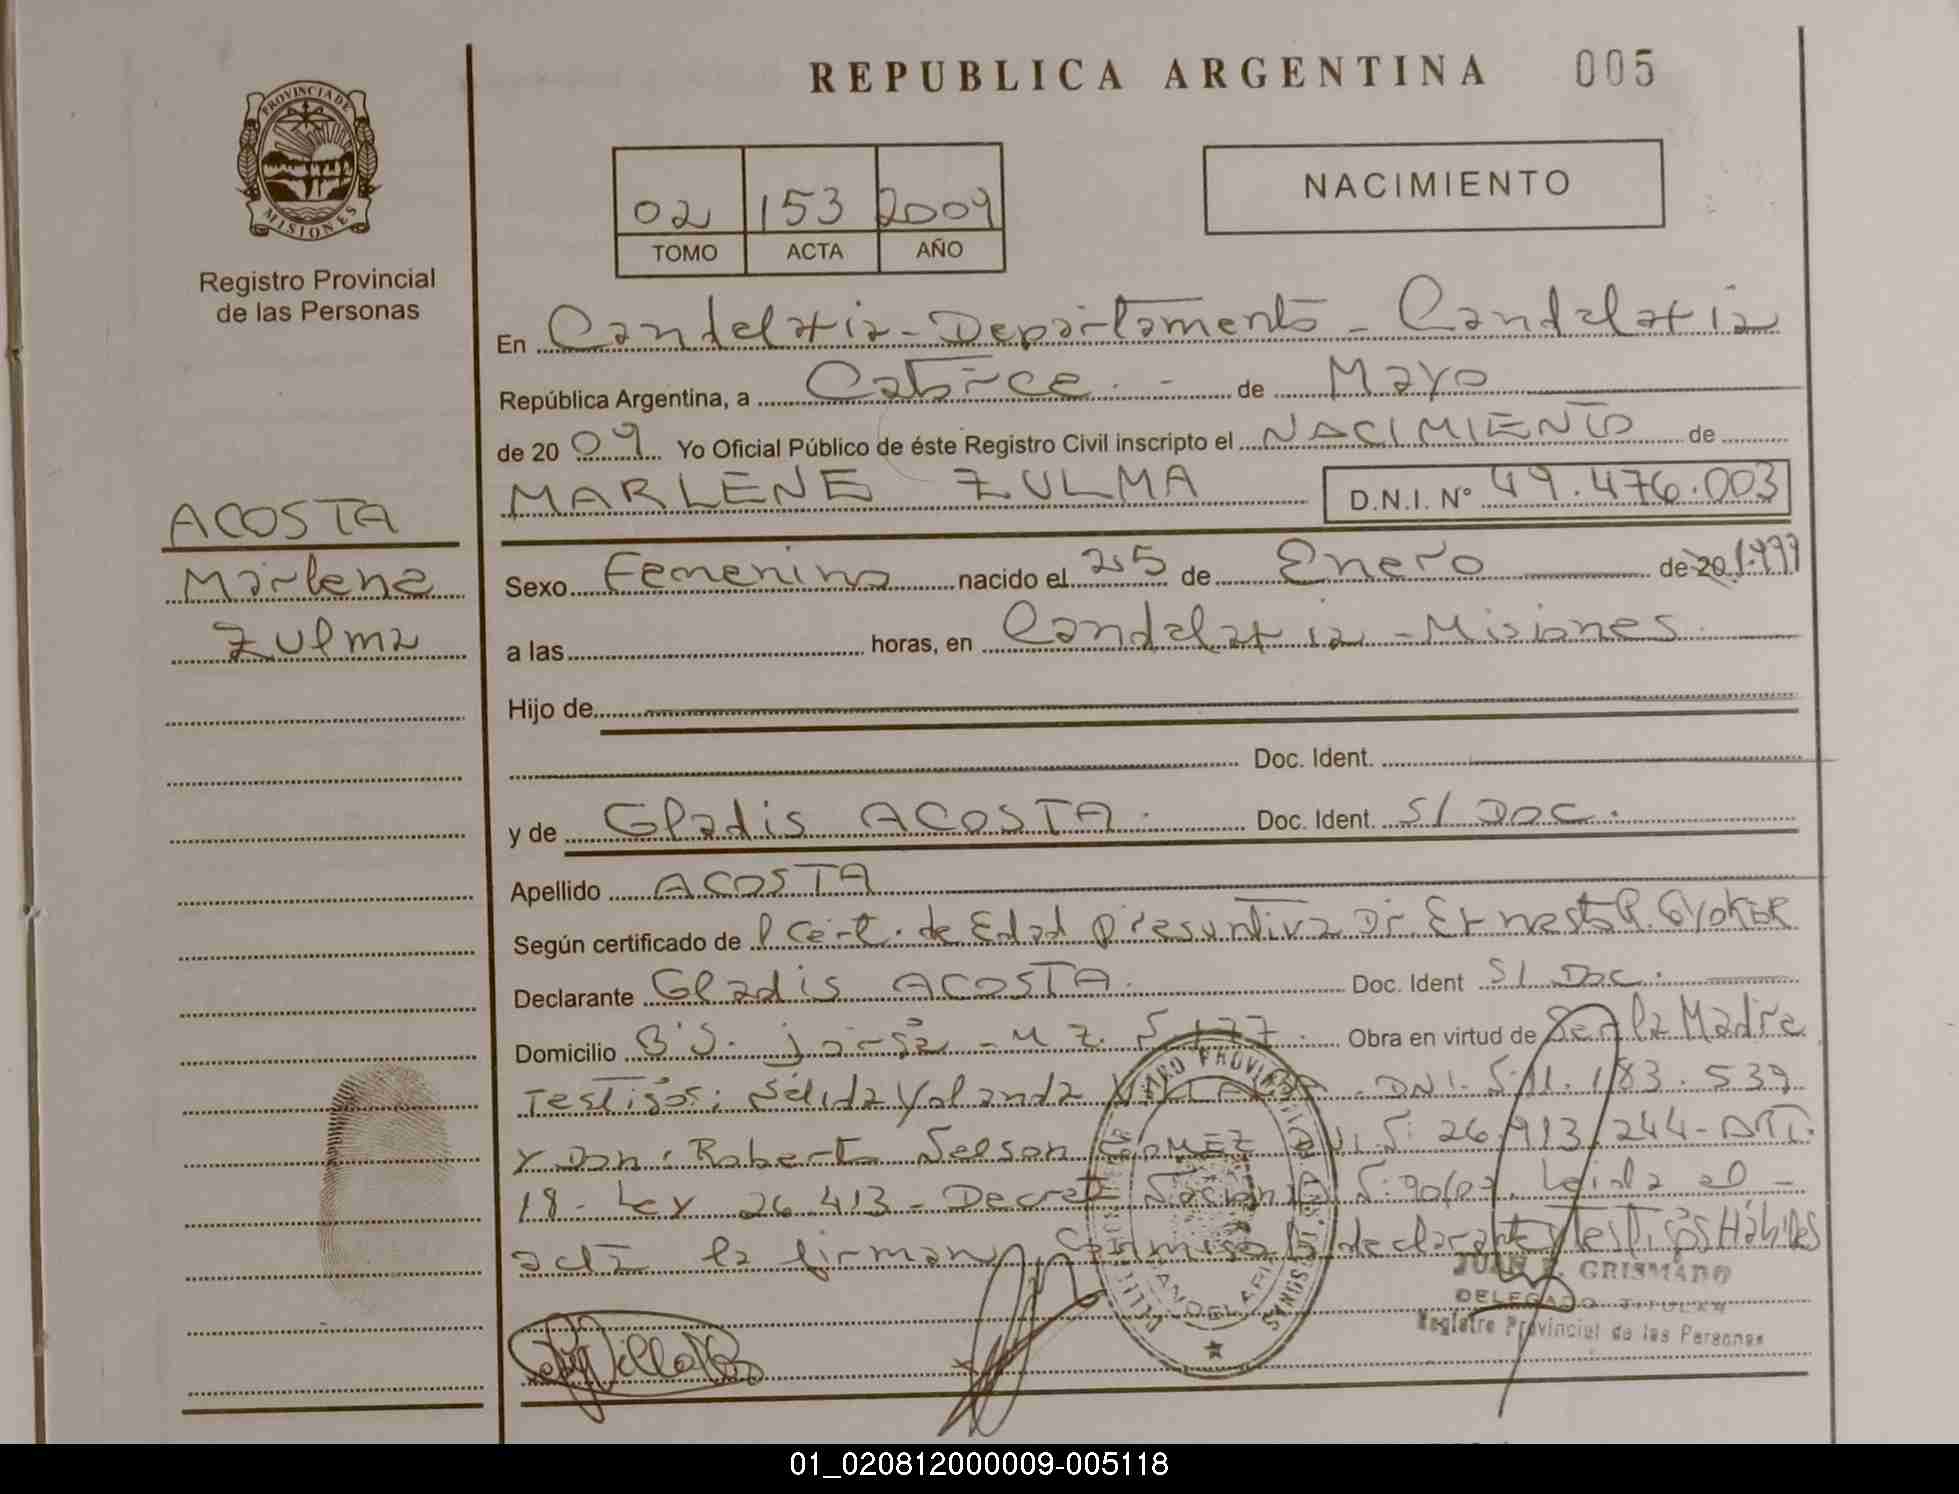 REPUBLICA ARGENTINA 005
PROVINCIA DE
MISIONES
Registro Provincial
de las Personas
02 153 2009
TOMO ACTA AÑO
NACIMIENTO
En Candelaria - Departamento - Candelaria
República Argentina, a Catorce de Mayo
de 20 09 Yo Oficial Público de éste Registro Civil inscripto el NACIMIENTO de
MARLENE ZULMA D.N.I. N° 49.476.003
ACOSTA
Marlene
Zulma
Sexo Femenino nacido el 25 de Enero de 20 1.999
a las horas, en Candelaria - Misiones.
Hijo de
Doc. Ident.
y de Gladis ACOSTA. Doc. Ident. S/ Doc.
Apellido ACOSTA
Según certificado de Cert. de Edad Presuntiva Dr. Ernesto R.
Declarante Gladis ACOSTA. Doc. Ident S/ Doc.
Domicilio Mz. Obra en virtud de Ser la Madre
Testigos: Nélida Yolanda - DNI. N: 11.183.539
y Don: Roberto Nelson GOMEZ N: 26.913.244 - ART.
18 - Ley 26.413 - Decreto N: 90/09. Leida el -
acta la firman Conmigo la declarante y Testigos Hábiles
JUAN GRISMADO
DELEGADO TITULAR
Registro Provincial de las Personas
CANDELARIA
MISIONES
01_020812000009-005118